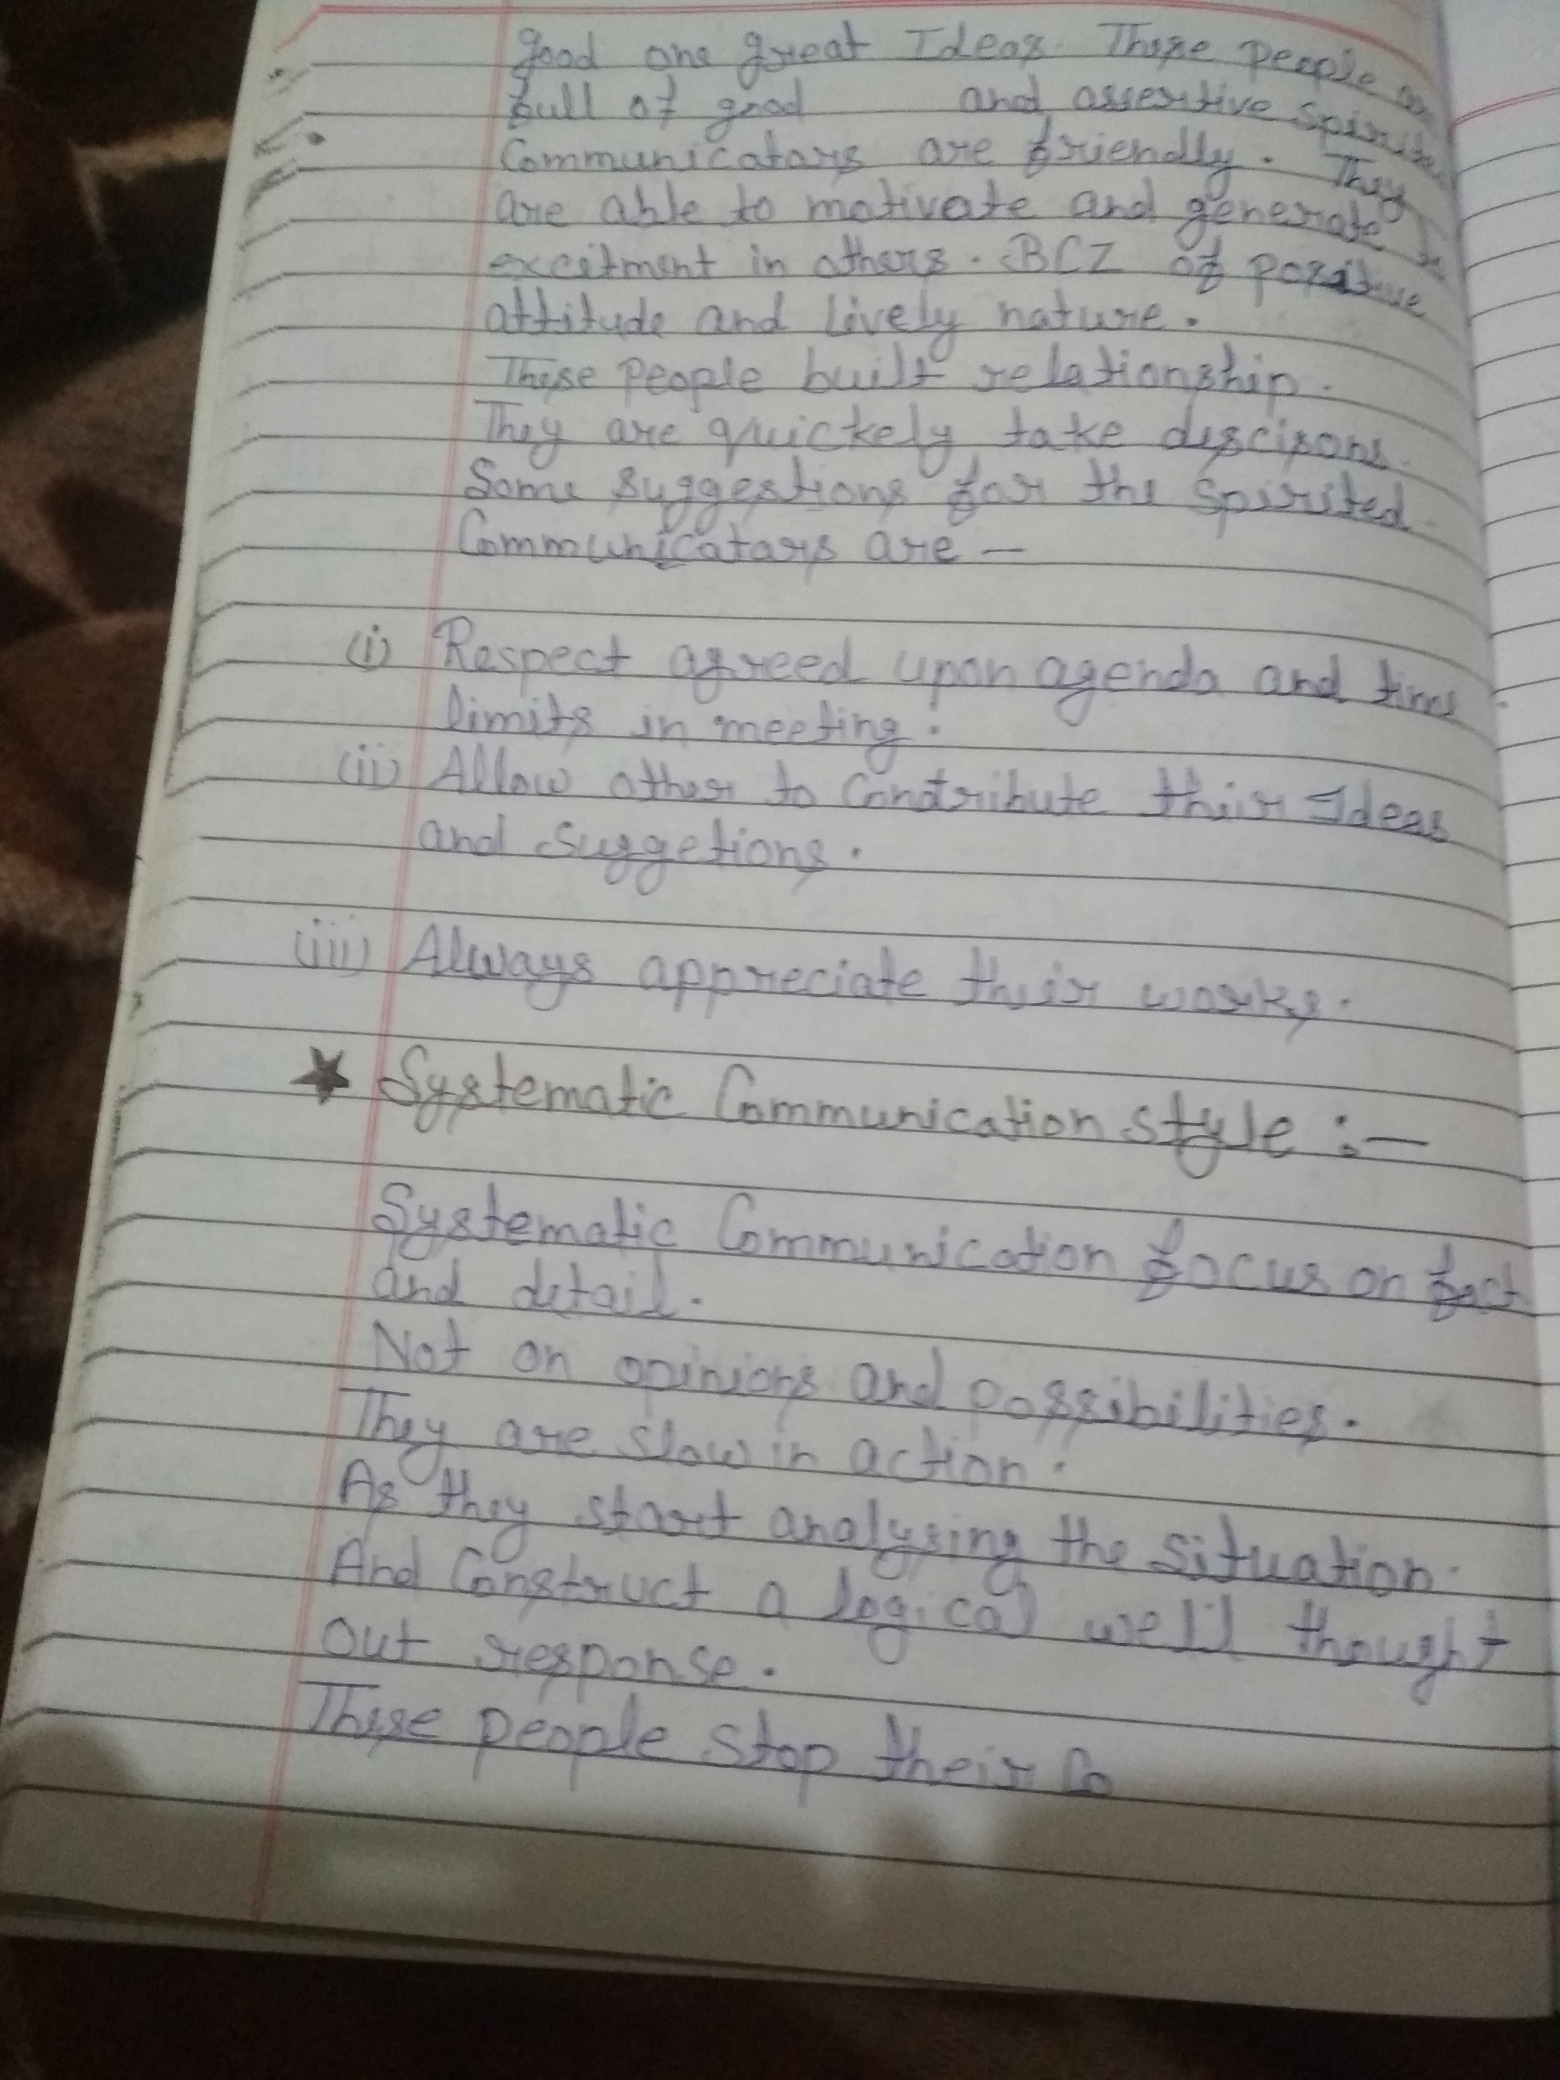 good one great Ideas. These people are
full of good and assertive spirited
Communicators are friendly. They
are able to motivate and generate
excitment in others. BCZ of positive
attitude and lively nature.
These people built relationship.
They are quickely take descisons.
Some suggestions for the spirited
Communicators are —
(i) Respect agreed upon agenda and time
limits in meeting.
(ii) Allow other to Contribute their Ideas
and suggetions.
(iii) Always appreciate their works.
★ Systematic Communication style :—
Systematic Communication focus on fact
and detail.
Not on opinions and possibilities.
They are slow in action.
As they start analysing the situation.
And Construct a logical well thought
out response.
These people stop their Co